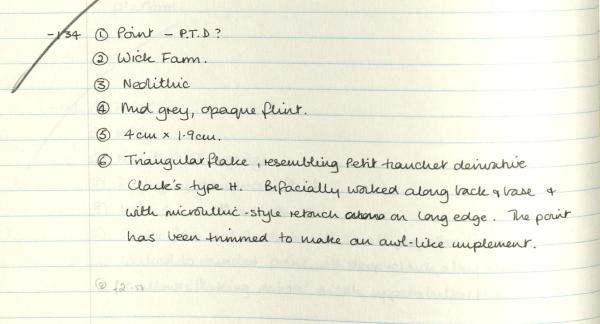 -134 ① Point - P.T.D?
② Wick Farm.
③ Neolithic
④ Mid grey, opaque flint.
⑤ 4cm x 1.9cm.
⑥ Triangular flake, resembling Petit tranchet derivative
Clark's type H. Bifacially worked along back & base &
with microlithic-style retouch on long edge. The point
has been trimmed to make an awl-like implement.